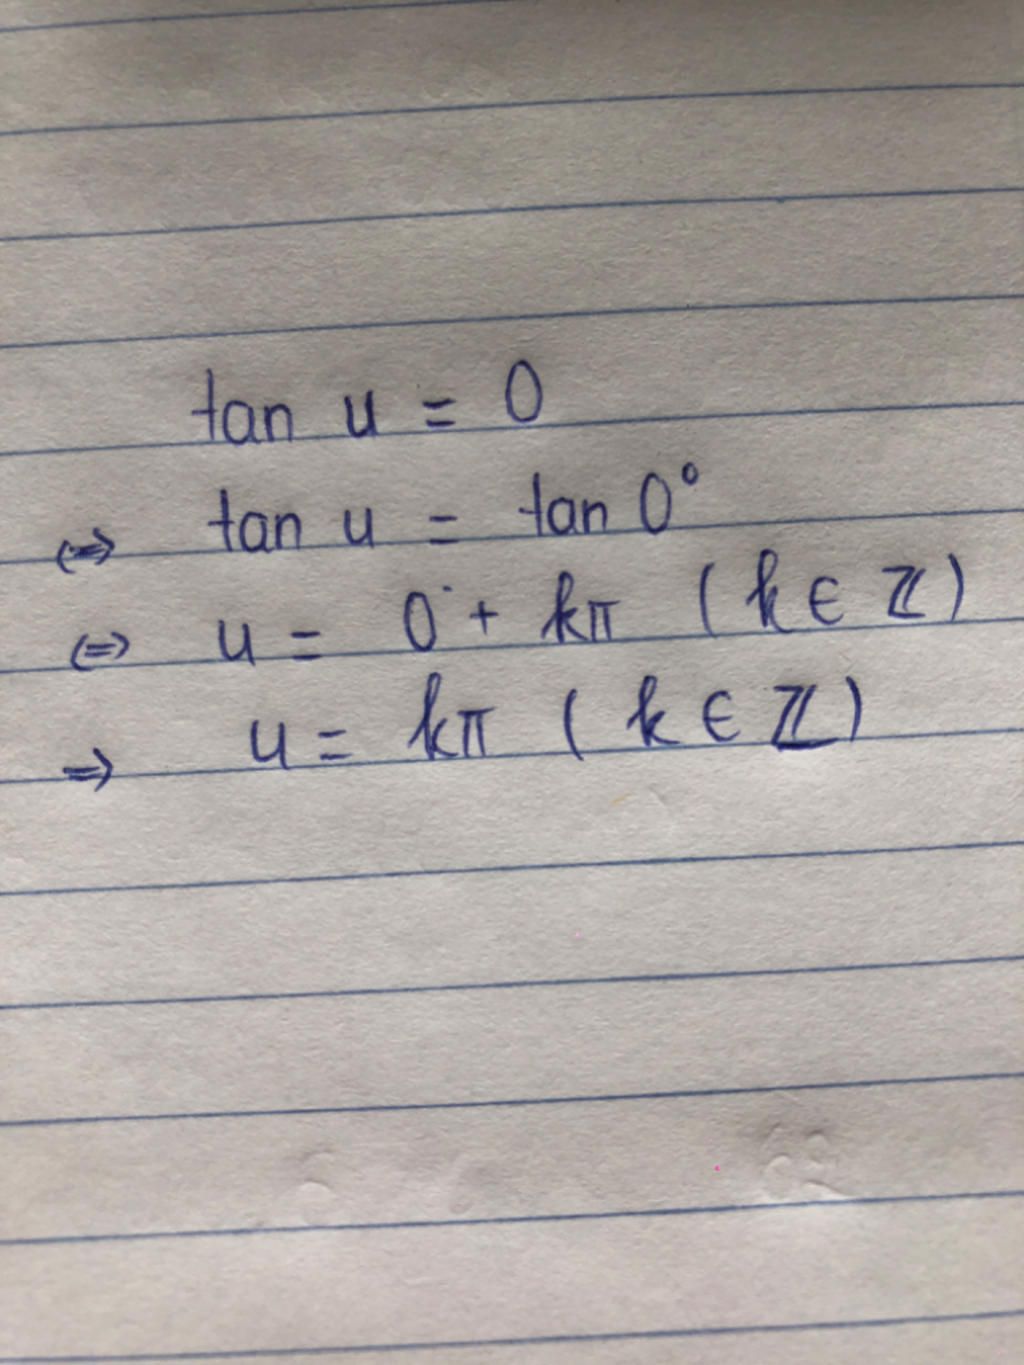 tan u = 0
⇔ tan u = tan 0°
⇔ u = 0 + kπ ( k ∈ ℤ )
⇒ u = kπ ( k ∈ ℤ )